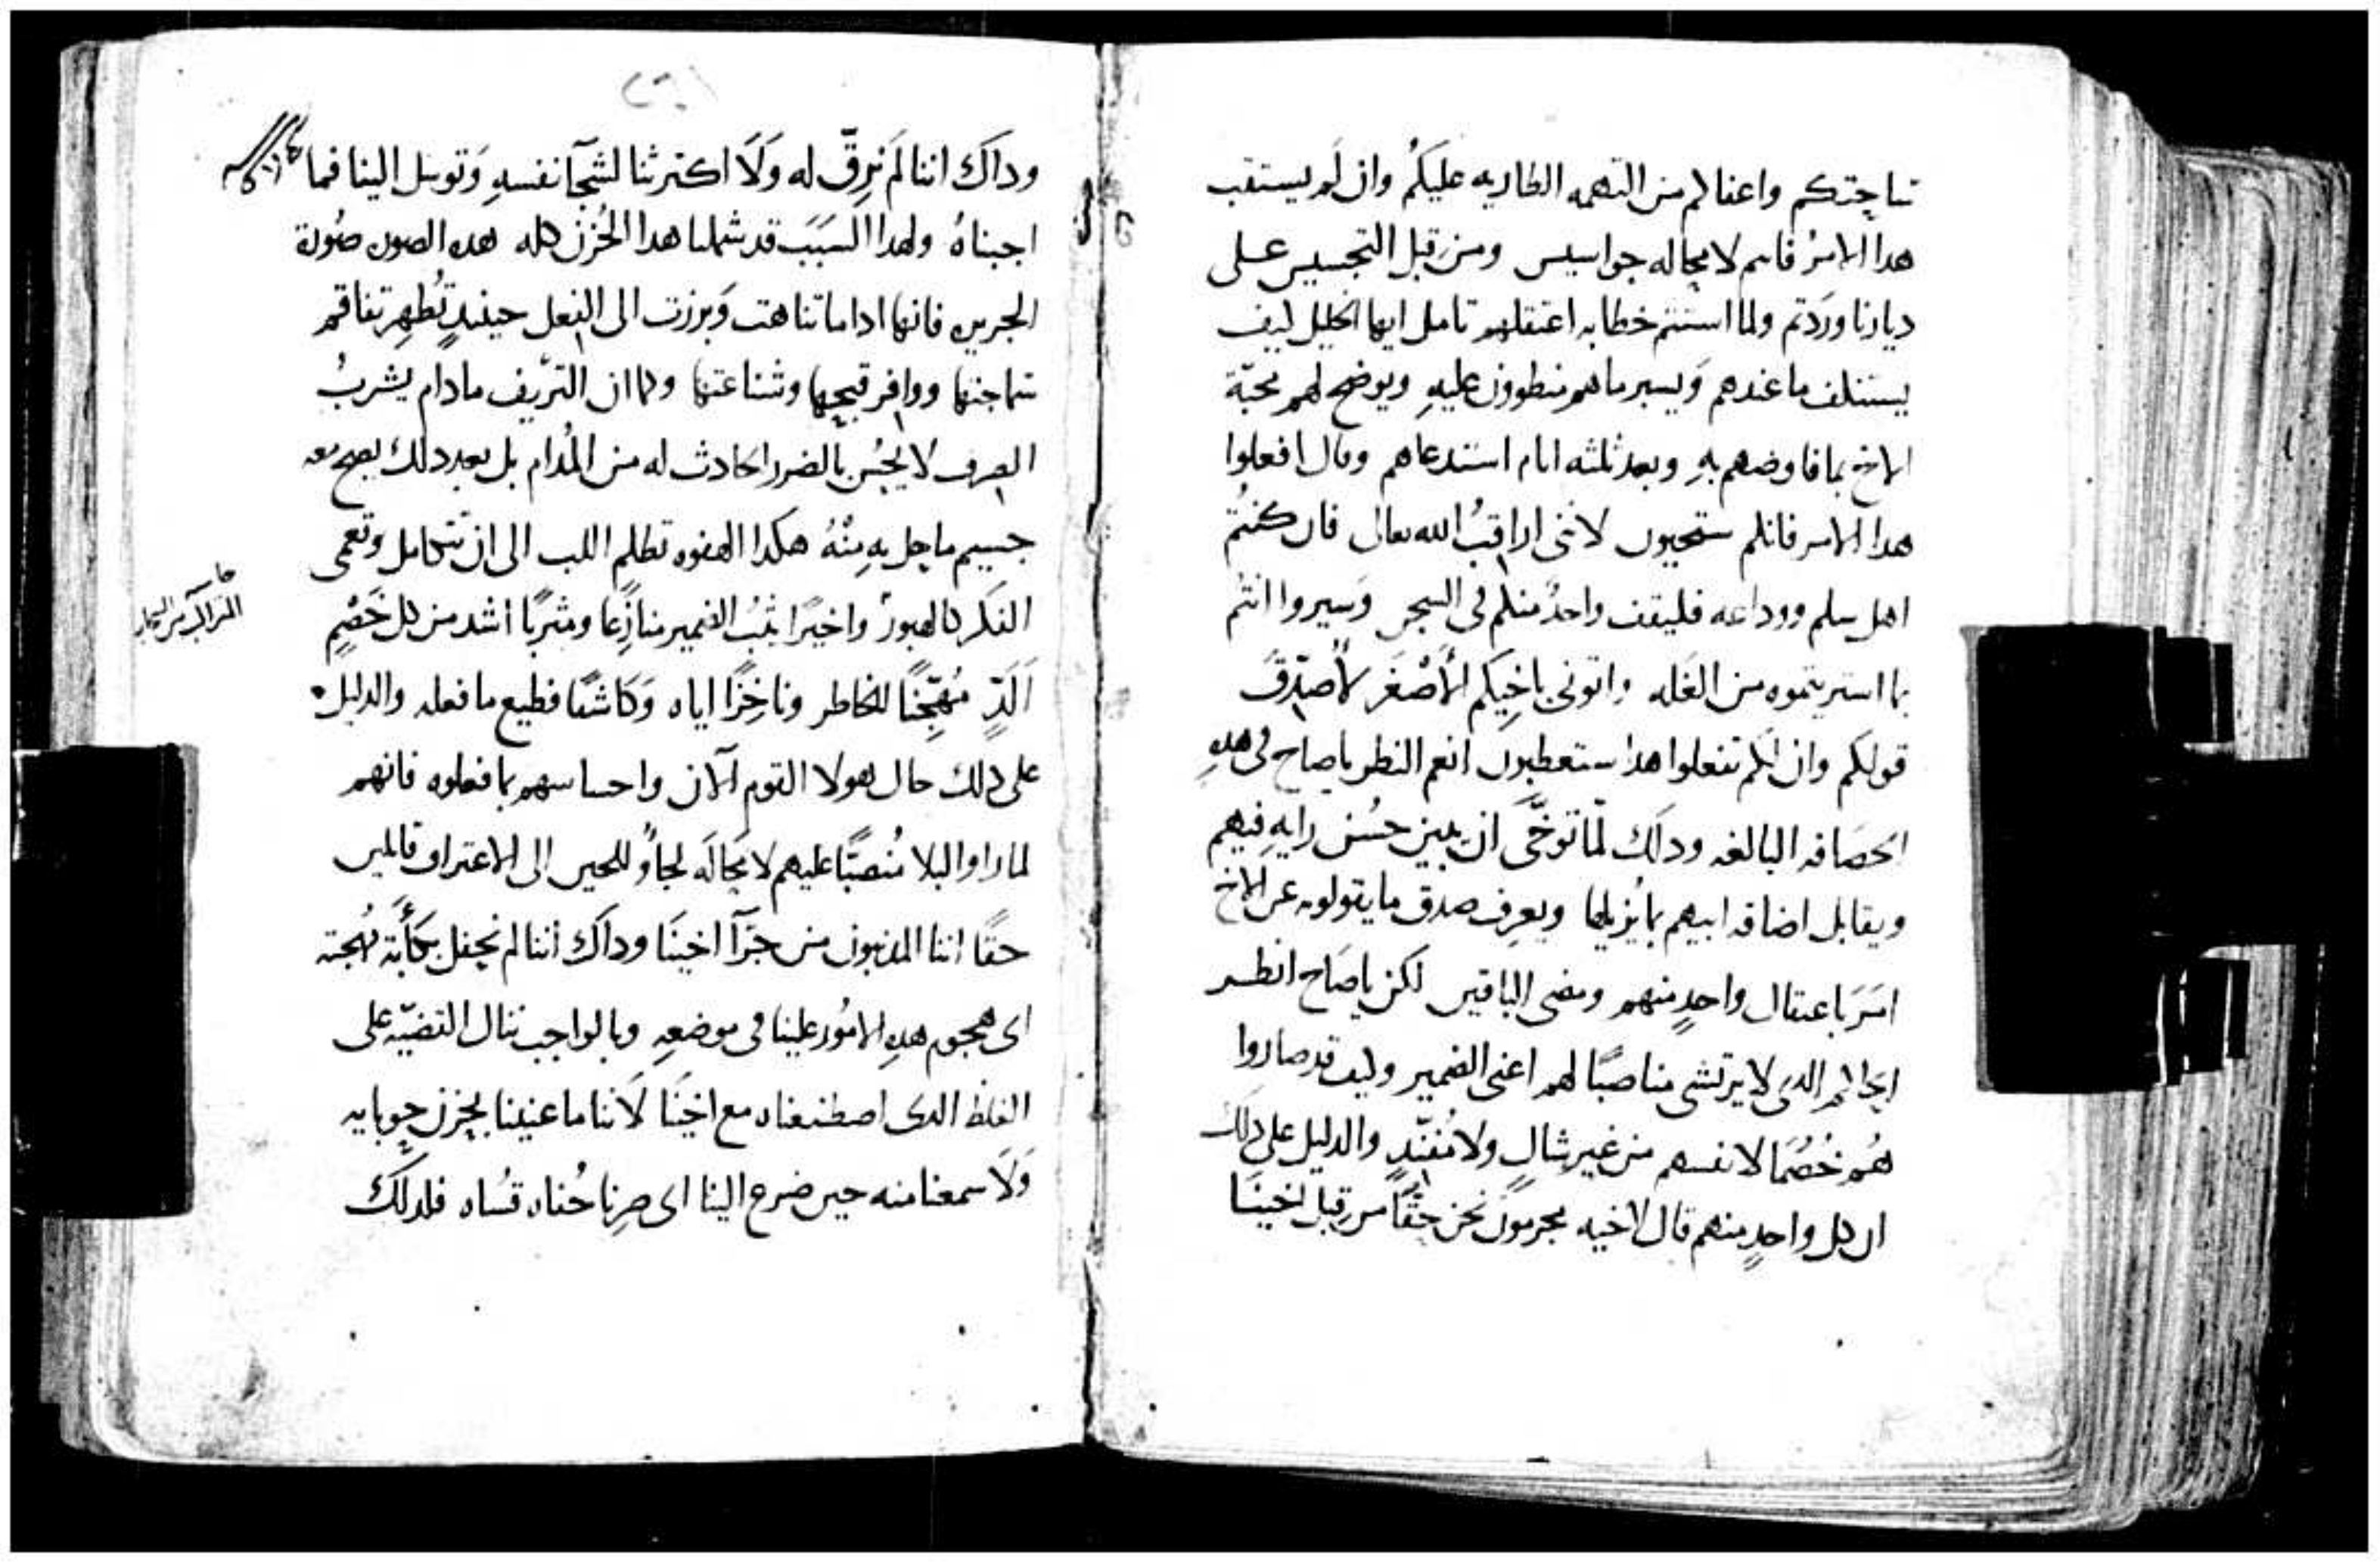 تناجيتكم واعفالكم من التهمه الطاريه عليكُم وان لم يستقب
هدا الامرُ فانكم لا محاله جواسيس ومن قبل التجسيس على
ديارنا وردتم ولما استتم خطابه اعتقلهم تامل ايها الخليل كيف
يستنلف ما عندهم ويسبر ما هم منطوون عليهِ ويوضح لهم محبّة
الاخ بما فاوضهم بهِ وبعد ثلثه ايام استدعاهم وقال افعلوا
هدا الامر فانكم ستحيون لاننى اراقبُ الله تعالى فان كنتُم
اهل سلم ووداعه فليقف واحدٌ منكم فى السجن وسيروا انتُم
بما استريتموه من الغَله واتونى باخِيكم الأصْغَر لأصدّق
قولكم وان لَم تفعلوا هدا ستعطبون انعم النظر ياصاح فى هدهِ
الحَصَافه البالغه وداك لمّا توخّى ان يبين حسُن رايهِ فيهم
ويقابل اضافه ابيهم بما يُزيلها ويعرف صدق ما يقولونه عن الاخ
امَرَ باعتقال واحدٍ منهم ومضى الباقين لكن ياصَاح انظر
الحاكم الدى لا يرتشى مناصبًا لهم اعنى الضمير وكيف قد صاروا
هُم خُصُمَا لانفسهم من غير شاكٍ ولا مُفنّدٍ والدليل على دلك
ان كل واحدٍ منهم قال لاخيه مجرمون نحن حقًّا من قبل اخينَا
وداك اننا لَم نرقّ له وَلَا اكترثنا لشجَآ نفسهِ وَتوسل الينا فما
اجبناهُ ولهدا السَبَب قد شملنا هدا الحُزن كله هده الصون صُورة
الجرين فانها ادا ما تناهت وَبرزت الى الفعل حينيدٍ تُظهِر تفاقم
سماجتها ووافر قبحِها وشناعتها وكما ان النزّيف مادام يشربُ
الصرف لا يحُس بالضرر الحادث له من المُدام بل بعد دلك يصح معه
جسيم ما حل بهِ مِنْهُ هكدا الهفوه تظلم اللب الى ان تتكامل وتعمى
الفكر كالهبور واخيرًا يثبُ الضمير منازعًا ومثربًا اشد من كل خَصْمٍ
اَلَدٍّ مُهجّنًا للخاطر وناخِزًا اياه وَكَاشفًا فظيع ما فعله والدليل
على دلك حال هولا القوم الآن واحساسهم بما فعلوه فانهم
لما راوا البلا مُنصبًّا عليهم لا محَالَه لجاوُ للحين الى الاعتراف قالين
حقًا اننا المدنبون من جرّآ اخينَا وداك اننا لم نحفل بكأَبة مُهجته
اى هجوم هدهِ الامُور علينا فى موضعهِ وبالواجب ننال القضيّه على
الغلظ الدى اصطنعناه مع اخينَا لاننا ما عنينا بحزن حوبايه
وَلَا سمعنا منه حين ضرع الينا اى صِرنا جُفاه قسُاه فلدلك